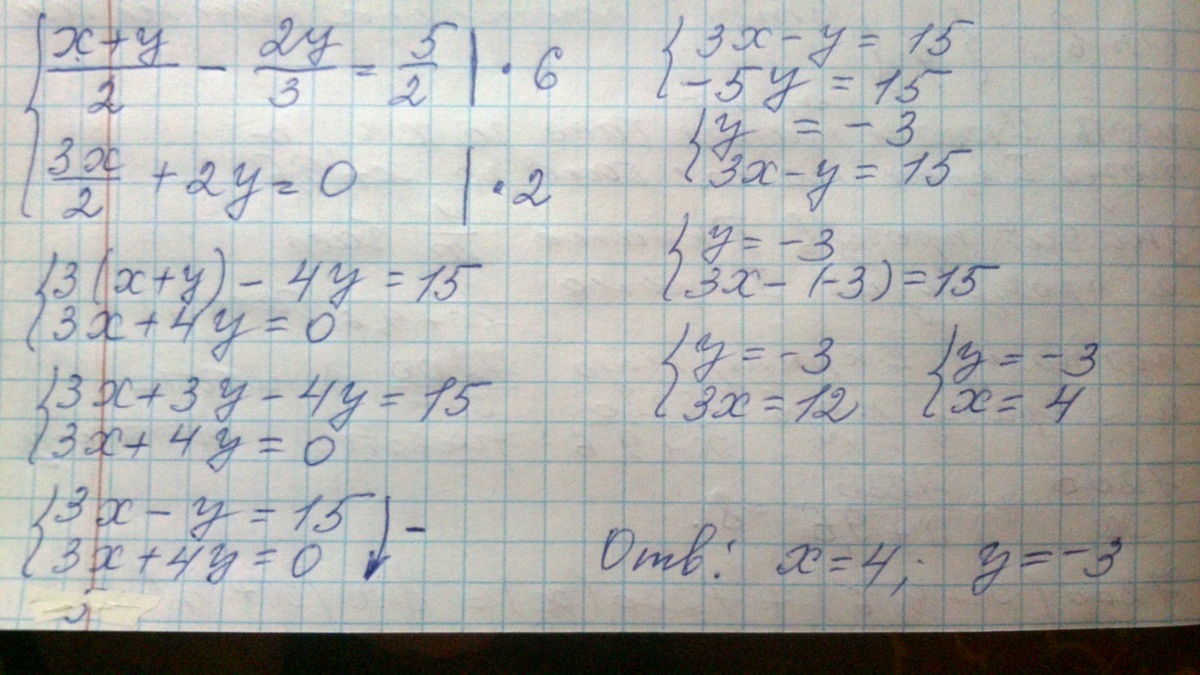 { (x+y)/2 - 2y/3 = 5/2 | · 6
{ 3x/2 + 2y = 0 | · 2
{ 3(x+y) - 4y = 15
{ 3x + 4y = 0
{ 3x + 3y - 4y = 15
{ 3x + 4y = 0
{ 3x - y = 15
{ 3x + 4y = 0 ↓ -
{ 3x - y = 15
{ -5y = 15
{ y = -3
{ 3x - y = 15
{ y = -3
{ 3x - (-3) = 15
{ y = -3
{ 3x = 12
{ y = -3
{ x = 4
Отв: x = 4; y = -3